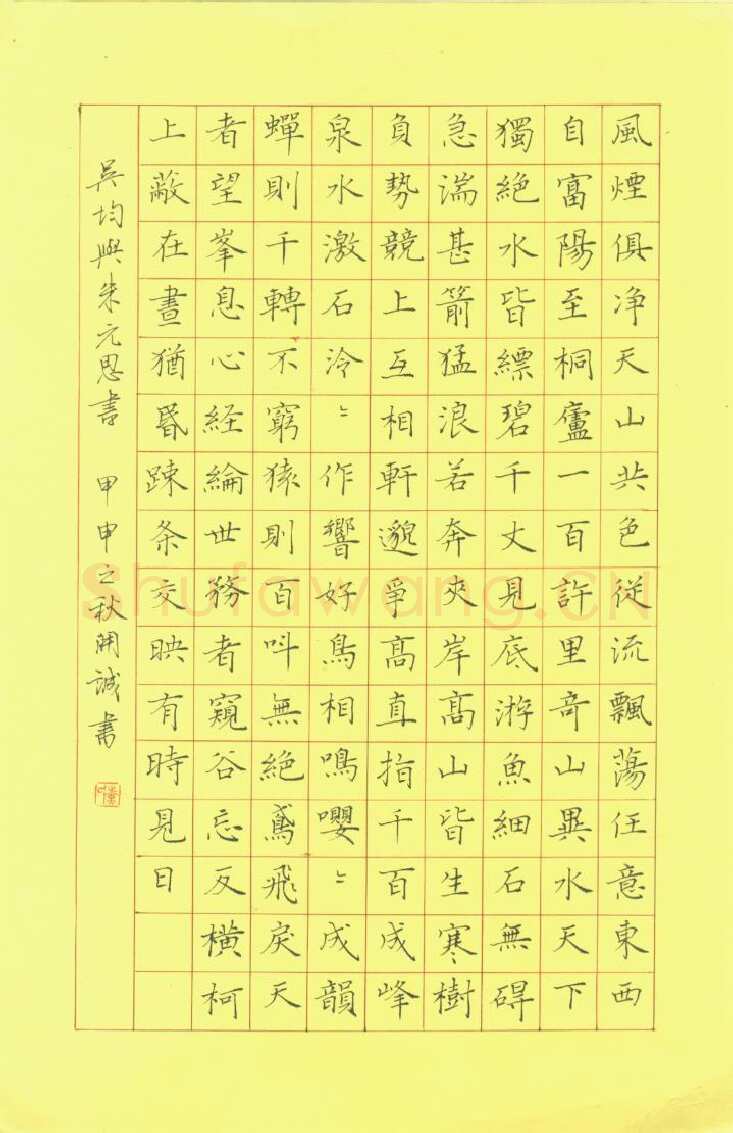 風煙俱净天山共色従流飄蕩任意東西
自富陽至桐廬一百許里奇山異水天下
獨絶水皆縹碧千丈見底游魚細石無碍
急湍甚箭猛浪若奔夾岸髙山皆生寒樹
負勢競上互相軒邈爭髙直指千百成峰
泉水激石泠〻作響好鳥相鳴嚶〻成韻
蟬則千轉不窮猿則百叫無絶鳶飛戾天
者望峯息心経綸世務者窺谷忘反横柯
上蔽在晝猶昏踈条交映有時見日
吳均與朱元思書 甲申之秋開誠書
Shufawang.CN